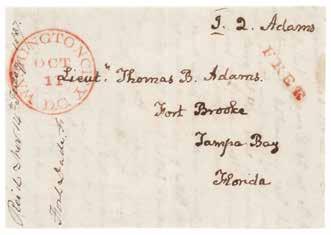 J. Q. Adams
FREE
WASHINGTON CITY
OCT
11
D.C.
Lieut. Thomas B. Adams.
Fort Brooke
Tampa Bay
Florida